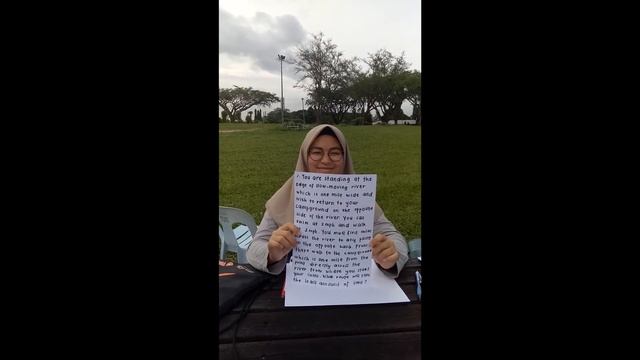 1. You are standing at the
edge of slow-moving river
which is one mile wide and
wish to return to your
campground on the opposite
side of the river. You can
swim at 2mph and walk
3mph. You must first swim
across the river to any point
on the opposite bank. From
there walk to the campground
which is one mile from the
point directly across the
river from where you start
your swim. What route will take
the least amount of time?